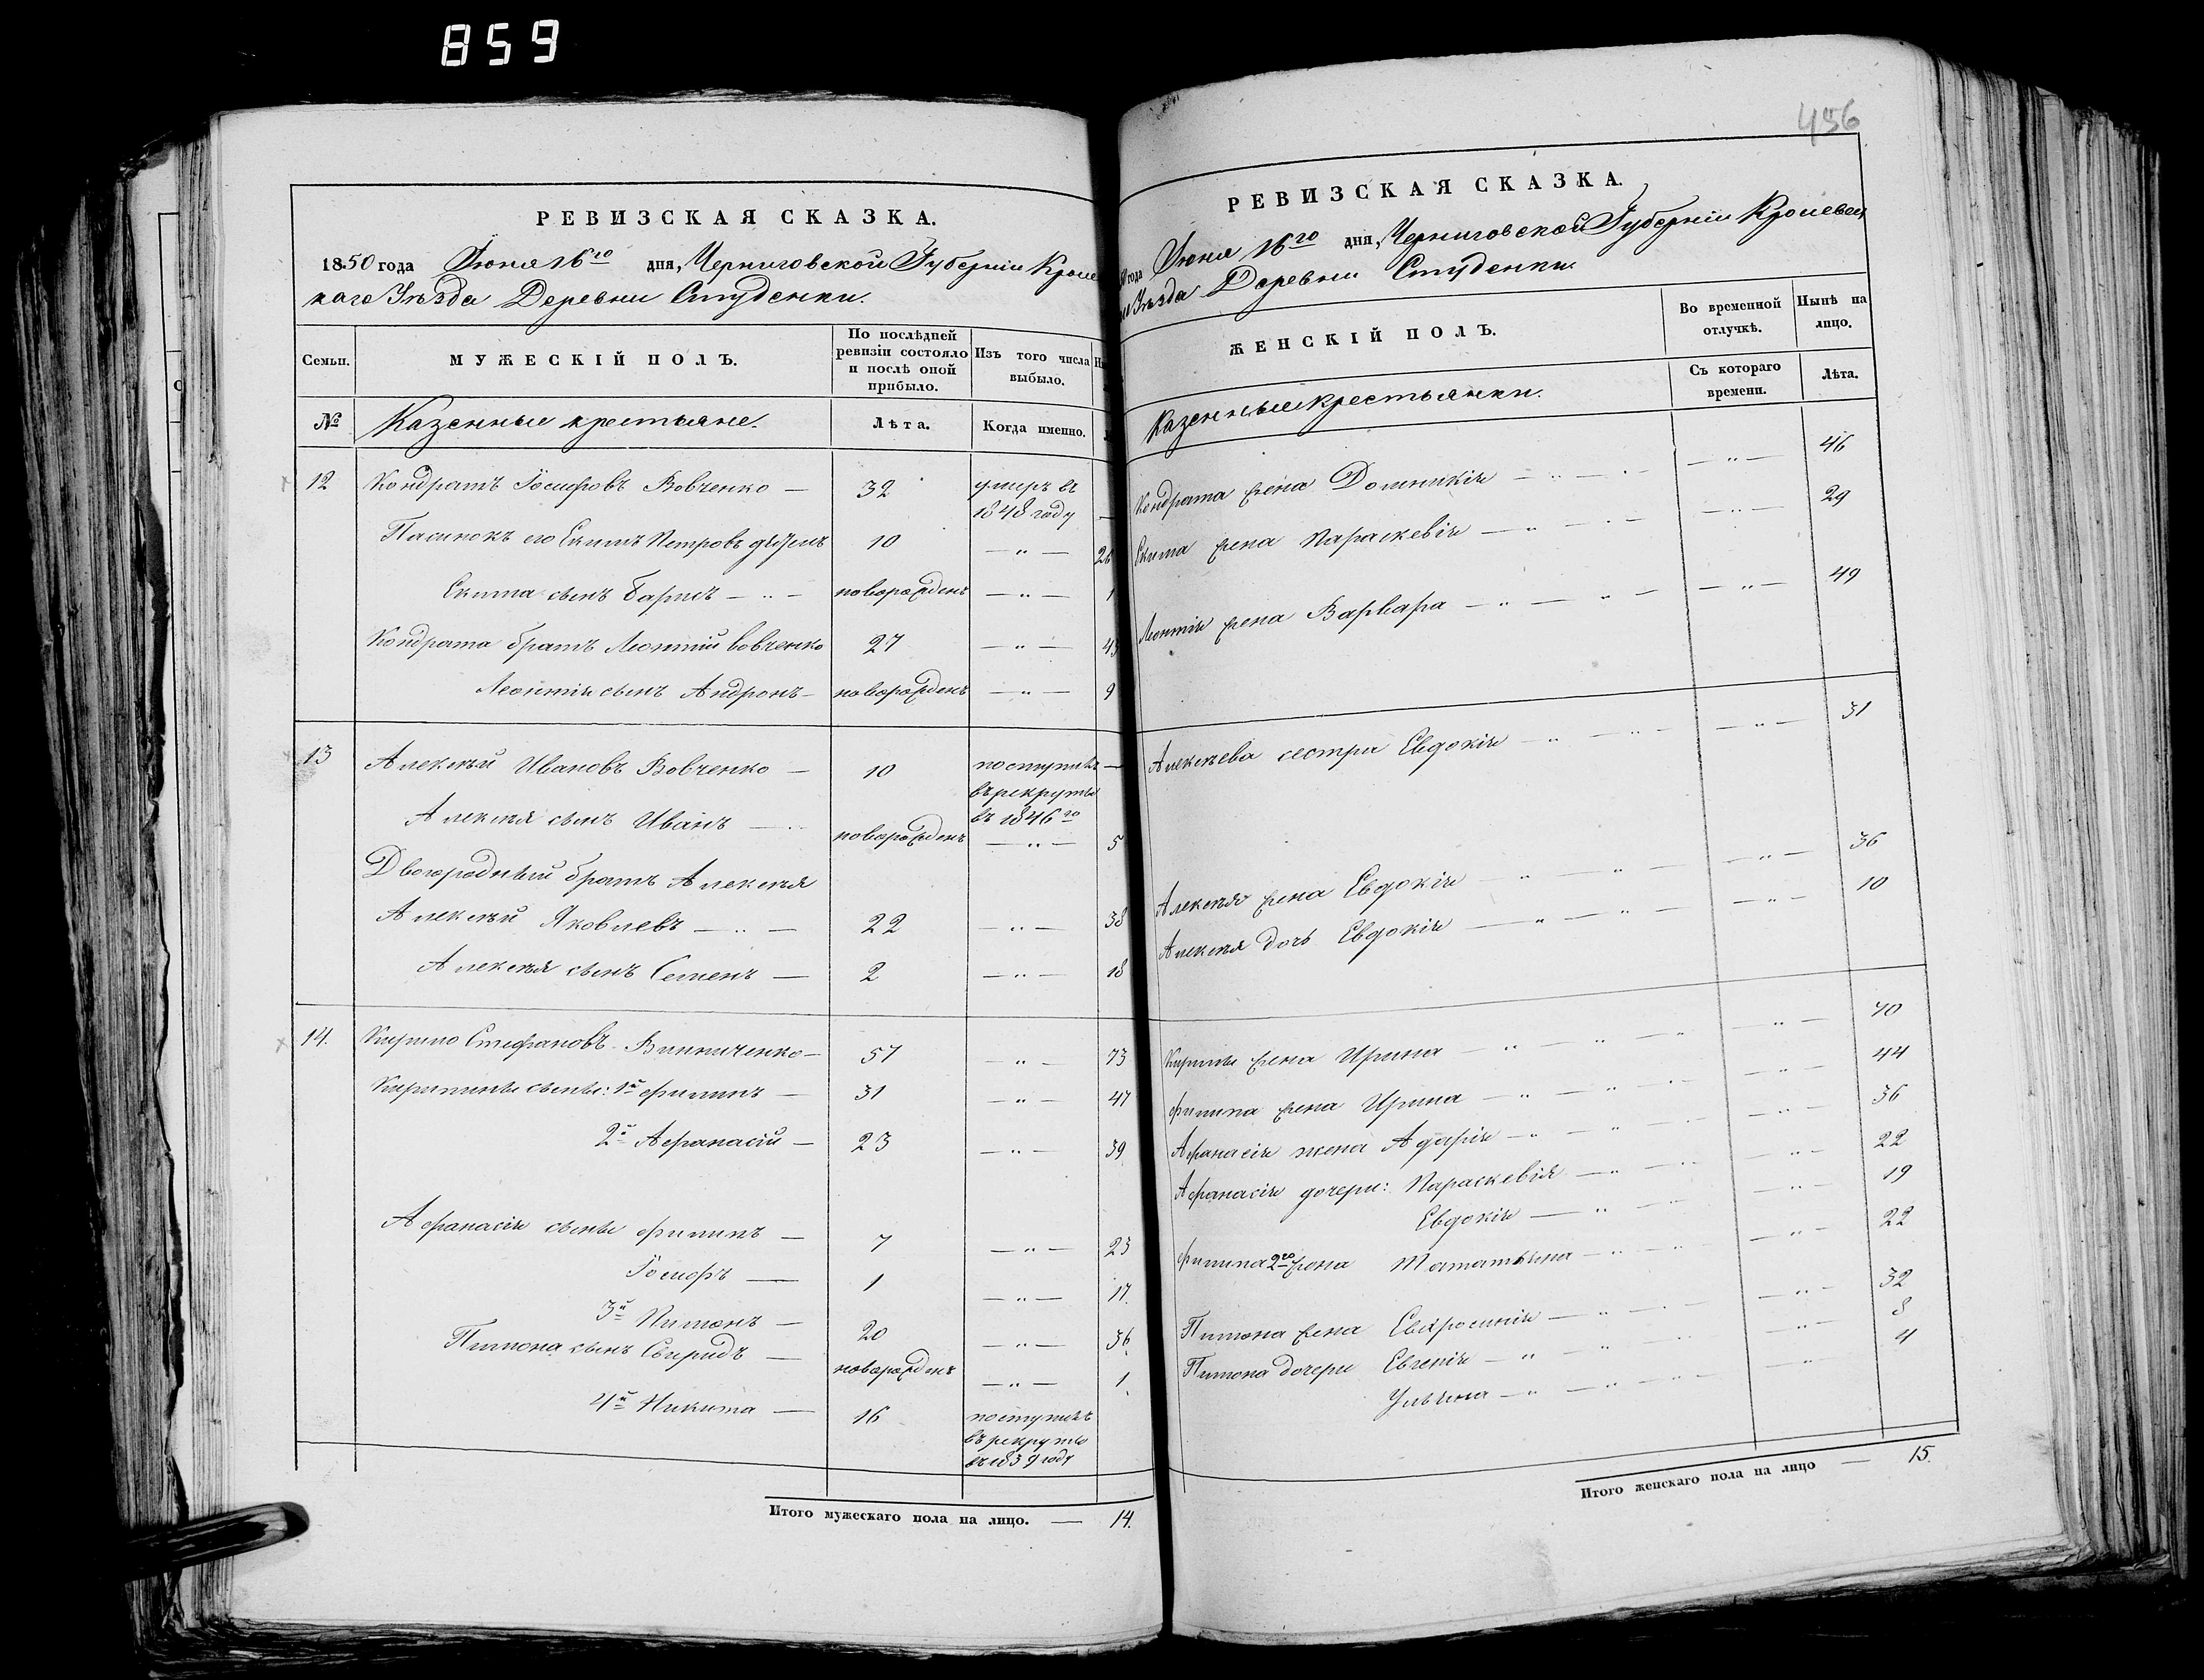 859
РЕВИЗСКАЯ СКАЗКА.
1850 года Іюня 16го дня, Черниговской Губерніи Кроле
каго Уѣзда Деревни Студенки.
Семьи. МУЖЕСКІЙ ПОЛЪ. По послѣдней ревизіи состояло и послѣ оной прибыло. Изъ того числа выбыло.
№ Казенные крестьяне. Лѣта. Когда именно.
12 Кондратъ Іосифовъ Вовченко — 32 умеръ въ 1848 году —
Пасынокъ его Екимъ Петровъ 10 — " — 26
Екима сынъ Барисъ — " — новорожденъ — " — 1
Кондрата братъ Леонтій Вовченко 27 — " — 43
Леонтія сынъ Андронъ — новорожденъ — " — 9
13 Алексѣй Ивановъ Вовченко — 10 поступилъ въ рекруты въ 1846го —
Алексѣя сынъ Иванъ — новорожденъ — " — 5
Двоюродный братъ Алексѣя
Алексѣй Яковлевъ — " — 22 — " — 38
Алексѣя сынъ Семенъ — 2 — " — 18
14. Кирило Стефановъ Винниченко — 57 — " — 73
Кирилины сыны: 1й Филипъ — 31 — " — 47
2й Афанасій — 23 — " — 39
Афанасія сыны Филипъ — 7 — " — 23
Іосифъ — 1 — " — 17.
3й Пимонъ — 20 — " — 36.
Пимона сынъ Свиридъ — новорожденъ — " — 1.
4й Никита — 16 поступилъ въ рекруты въ 1839 году
Итого мужескаго пола на лицо. — 14.
456
РЕВИЗСКАЯ СКАЗКА.
года Іюня 16го дня, Черниговской Губерніи Кролевец
Уѣзда Деревни Студенки.
ЖЕНСКІЙ ПОЛЪ. Во временной отлучкѣ. Нынѣ на лицо.
Казенные крестьянки. Съ котораго времени. Лѣта.
Кондрата жена Домникія — " — — " — 46
Екима жена Параскевія — " — — " — 29
Леонтія жена Варвара — " — " — — " — 49
Алексѣева сестра Евдокія — " — " — — " — 31
Алексѣя жена Евдокія — " — " — — " — 36
Алексѣя дочь Евдокія — " — " — — " — 10
Кирилы жена Ирина — " — " — " — 70
Филипа жена Ирина — " — " — " — 44
Афанасія жена Адарія — " — " — — " — 36
Афанасія дочери: Параскевія — " — " — 22
Евдокія — " — — " — 19
Филипа 2го жена Тататьяна — " — " — — " — 22
Пимона жена Евфросинія — " — — " — 32
Пимона дочери Евгенія — " — " — 8
Ульяна — " — " — " 4
Итого женскаго пола на лицо — 15.